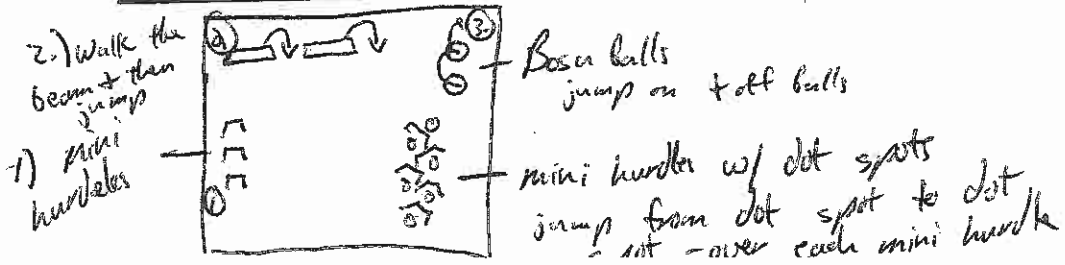 2.) Walk the
beam + then
jump
1) mini
hurdles
2
3.
1
Bosu balls
jump on + off balls
mini hurdles w/ dot spots
jump from dot spot to dot
spot - over each mini hurdle